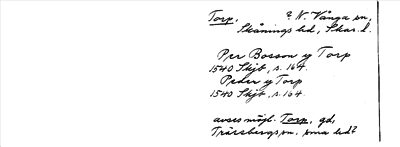 Torp. ? N. Vånga sn,
Skånings hd, Skar. l.
Per Bosson y Torp
1540 Skjb, s. 164.
Peder y Torp
1540 Skjb, s. 164.
avses möjl. Torp, gd,
Trässbergs sn. sma hd?